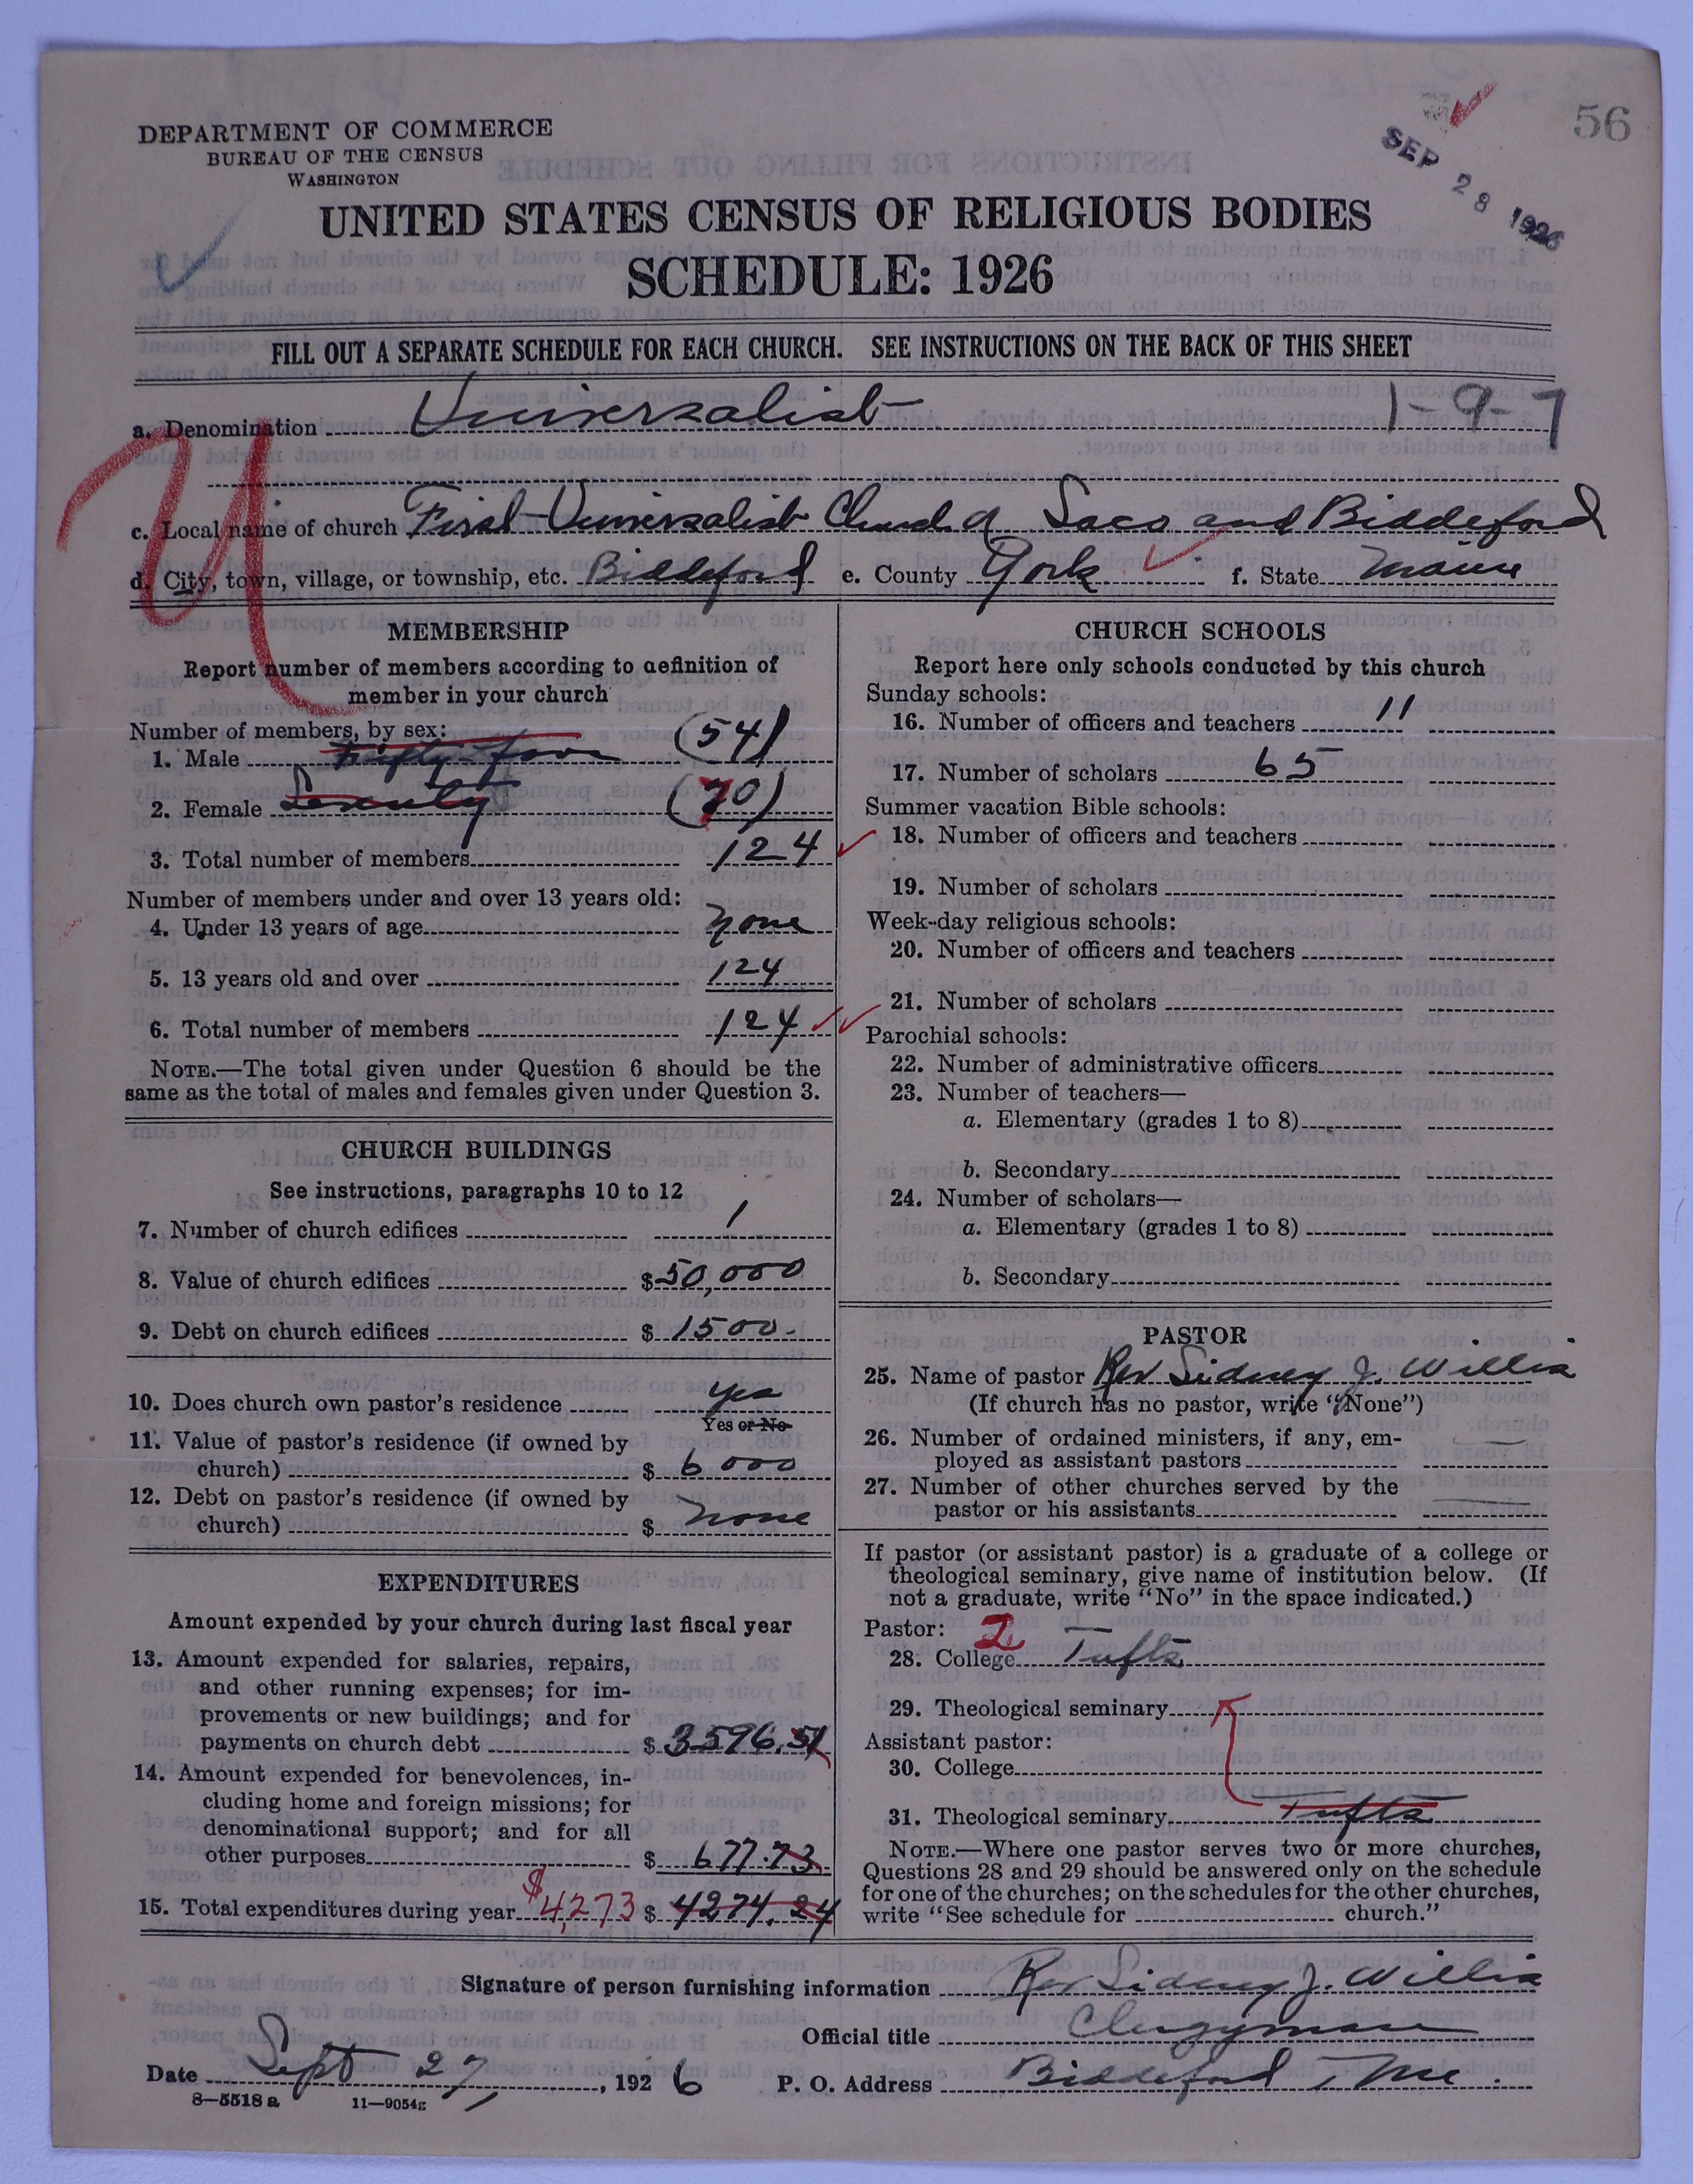 56
SEP 28 1926
DEPARTMENT OF COMMERCE
BUREAU OF THE CENSUS
WASHINGTON
UNITED STATES CENSUS OF RELIGIOUS BODIES
SCHEDULE: 1926
FILL OUT A SEPARATE SCHEDULE FOR EACH CHURCH. SEE INSTRUCTIONS ON THE BACK OF THIS SHEET
a. Denomination Universalist 1-9-7
U
c. Local name of church First Universalist Church of Saco and Biddeford
d. City, town, village, or township, etc. Biddeford e. County York f. State Maine
MEMBERSHIP
Report number of members according to definition of
member in your church
Number of members, by sex:
1. Male Fifty four (54)
2. Female Seventy (70)
3. Total number of members 124
Number of members under and over 13 years old:
4. Under 13 years of age none
5. 13 years old and over 124
6. Total number of members 124
NOTE.—The total given under Question 6 should be the
same as the total of males and females given under Question 3.
CHURCH BUILDINGS
See instructions, paragraphs 10 to 12
7. Number of church edifices 1
8. Value of church edifices $50,000
9. Debt on church edifices $ 1500.
10. Does church own pastor's residence yes
Yes or No
11. Value of pastor's residence (if owned by
church) $ 6000
12. Debt on pastor's residence (if owned by
church) $ none
EXPENDITURES
Amount expended by your church during last fiscal year
13. Amount expended for salaries, repairs,
and other running expenses; for im-
provements or new buildings; and for
payments on church debt $ 3596.51
14. Amount expended for benevolences, in-
cluding home and foreign missions; for
denominational support; and for all
other purposes $ 677.73
15. Total expenditures during year $4,273 $ 4274.24
CHURCH SCHOOLS
Report here only schools conducted by this church
Sunday schools:
16. Number of officers and teachers 11
17. Number of scholars 65
Summer vacation Bible schools:
18. Number of officers and teachers
19. Number of scholars
Week-day religious schools:
20. Number of officers and teachers
21. Number of scholars
Parochial schools:
22. Number of administrative officers
23. Number of teachers—
a. Elementary (grades 1 to 8)
b. Secondary
24. Number of scholars—
a. Elementary (grades 1 to 8)
b. Secondary
PASTOR
25. Name of pastor Rev Sidney J. Willis
(If church has no pastor, write "None")
26. Number of ordained ministers, if any, em-
ployed as assistant pastors
27. Number of other churches served by the
pastor or his assistants
If pastor (or assistant pastor) is a graduate of a college or
theological seminary, give name of institution below. (If
not a graduate, write "No" in the space indicated.)
Pastor: 2
28. College Tufts
29. Theological seminary
Assistant pastor:
30. College
31. Theological seminary Tufts
NOTE.—Where one pastor serves two or more churches,
Questions 28 and 29 should be answered only on the schedule
for one of the churches; on the schedules for the other churches,
write "See schedule for church."
Signature of person furnishing information Rev Sidney J. Willis
Official title Clergyman
Date Sept 27, 1926 P. O. Address Biddeford Me.
8—5518 a 11—9054